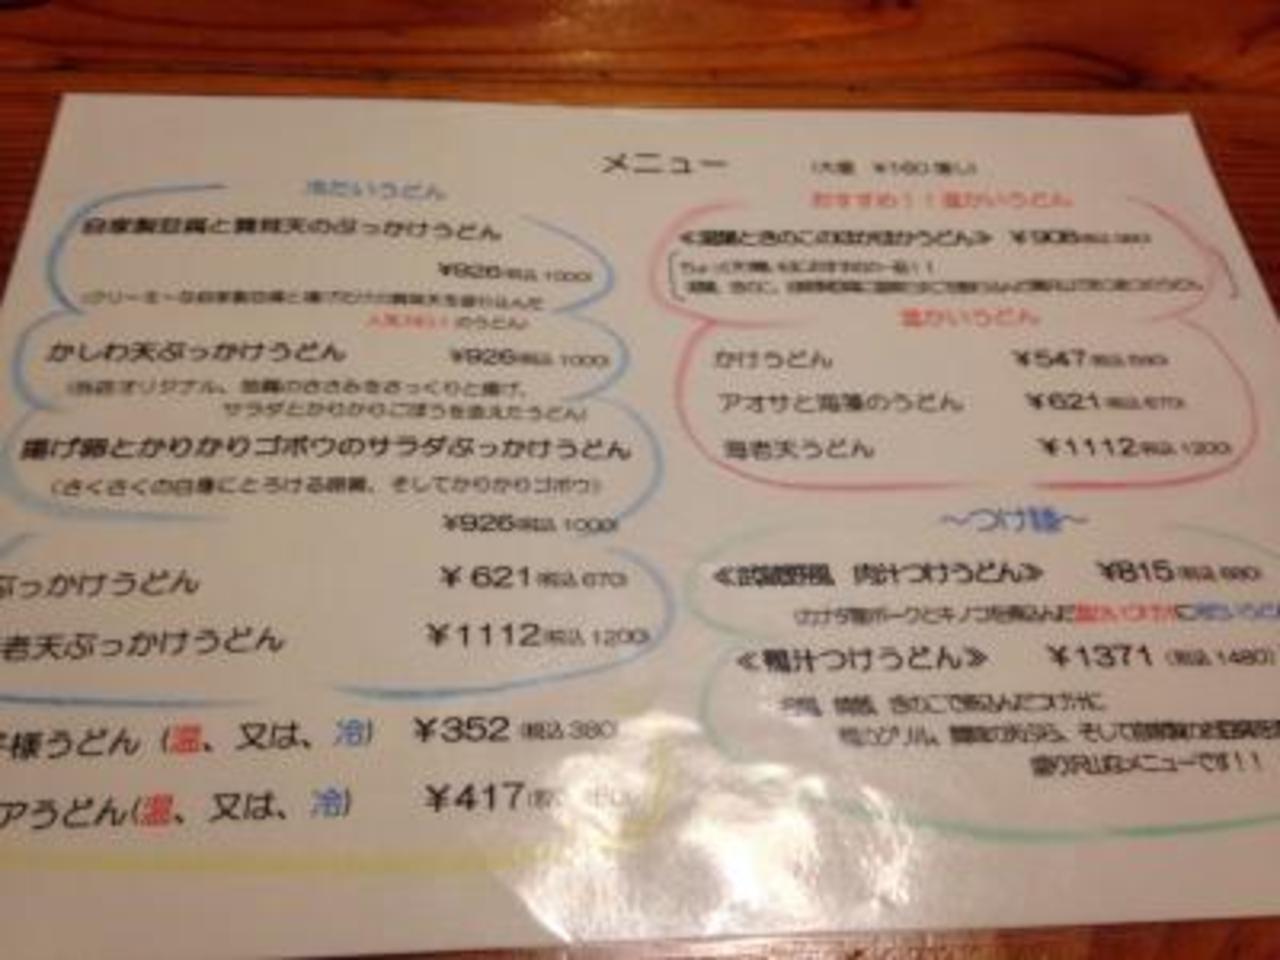 メニュー (大盛 ¥160増し)
冷たいうどん
自家製豆腐と舞茸天のぶっかけうどん
¥926(税込1000)
(クリーミーな自家製豆腐と揚げたての舞茸天を盛り込んだ
人気No.1のうどん)
かしわ天ぶっかけうどん ¥926(税込1000)
(当店オリジナル、若鶏のささみをさっくりと揚げ、
サラダとかりかりごぼうを添えたうどん)
揚げ卵とかりかりゴボウのサラダぶっかけうどん
(さくさくの白身にとろける卵黄、そしてかりかりゴボウ)
¥926(税込1000)
ぶっかけうどん ¥621(税込670)
老天ぶっかけうどん ¥1112(税込1200)
様うどん (温、又は、冷) ¥352 (税込380)
アうどん(温、又は、冷) ¥417
おすすめ!!温かいうどん
ときのこのぽかぽかうどん≫ ¥908(税込980)
温かいうどん
かけうどん ¥547(税込590)
アオサと海藻のうどん ¥621(税込670)
海老天うどん ¥1112(税込1200)
～つけ麺～
≪武蔵野風 肉汁つけうどん≫ ¥815(税込880)
(カナダ産ポークとキノコを煮込んだ温かいつけ汁に冷たいうどん
≪鴨汁つけうどん≫ ¥1371 (税込1480)
きのこで煮込んだつけ汁に
盛り沢山なメニューです!!